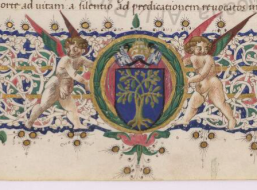 ad uitam a silentio ad predicationem reuocatos